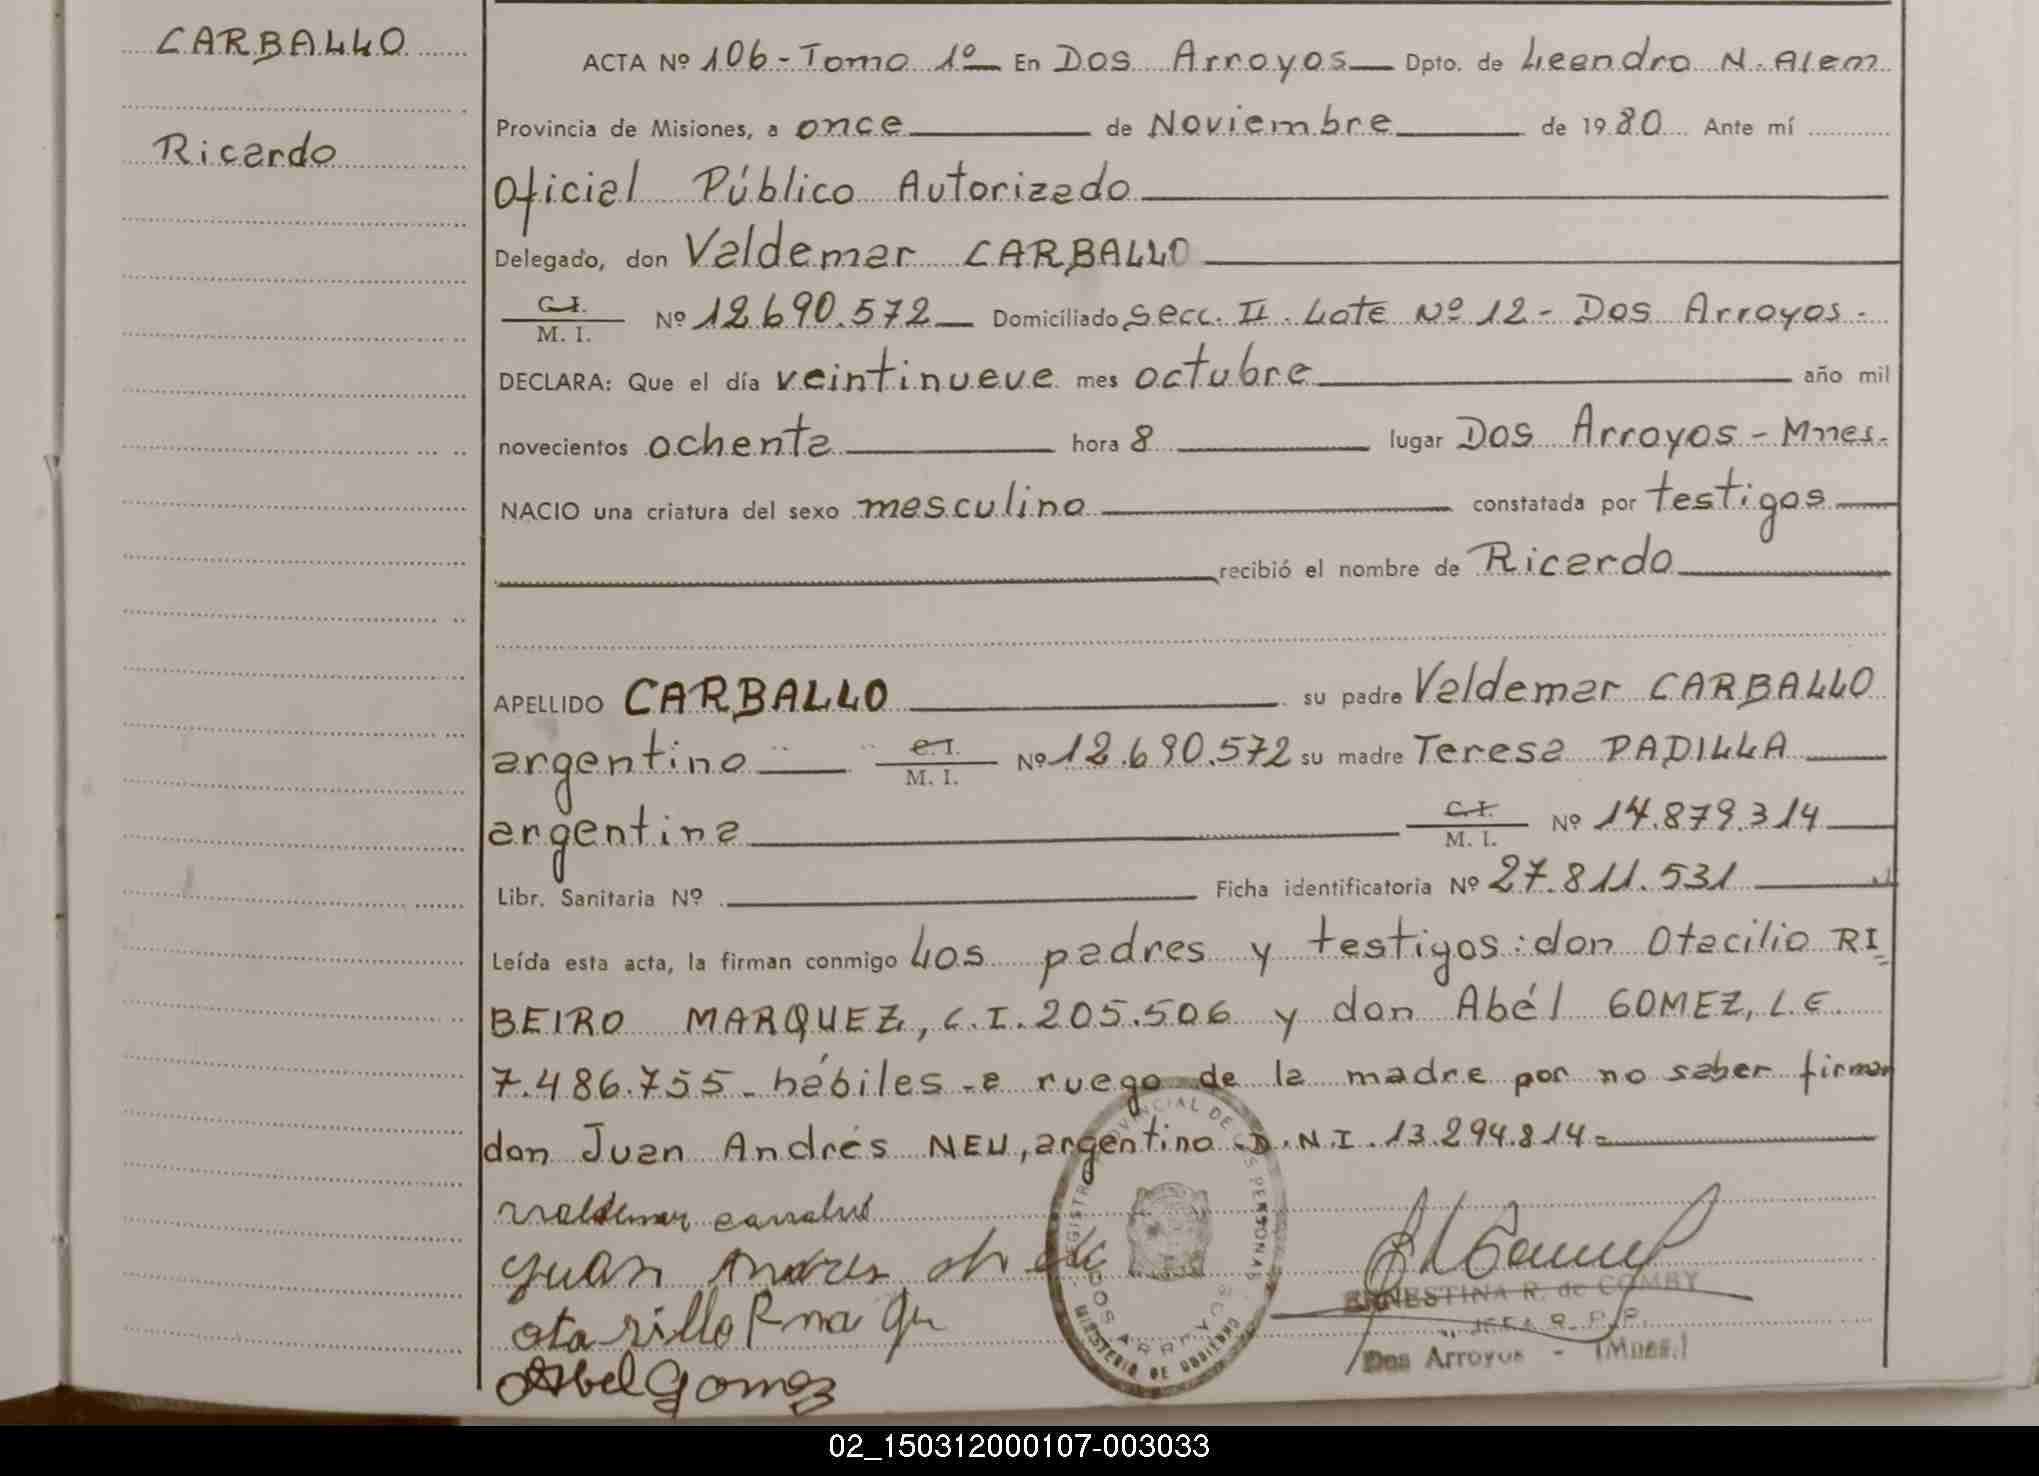 CARBALLO
Ricardo
ACTA Nº 106 - Tomo 1º En Dos Arroyos Dpto. de Leandro N. Alem
Provincia de Misiones, a once de Noviembre de 1980 Ante mí
Oficial Público Autorizado
Delegado, don Valdemar CARBALLO
C.I. / M. I. Nº 12.690.572 Domiciliado Secc. II. Lote Nº 12 - Dos Arroyos -
DECLARA: Que el día veintinueve mes octubre año mil
novecientos ochenta hora 8 lugar Dos Arroyos - Mnes.
NACIO una criatura del sexo masculino constatada por testigos
recibió el nombre de Ricardo
APELLIDO CARBALLO su padre Valdemar CARBALLO
argentino C.I. / M. I. Nº 12.690.572 su madre Teresa PADILLA
argentina C.I. / M. I. Nº 14.879.314
Libr. Sanitaria Nº Ficha identificatoria Nº 27.811.531
Leída esta acta, la firman conmigo Los padres y testigos: don Otacilio RI
BEIRO MARQUEZ, C.I. 205.506 y don Abél GOMEZ, L.E.
7.486.755 - hábiles - a ruego de la madre por no saber firmar
don Juan Andrés NEU, argentino D.N.I. 13.294.814 =
Valdemar
Juan Andres
Abel Gomez
REGISTRO PROVINCIAL DE LAS PERSONAS
DOS ARROYOS
MINISTERIO DE GOBIERNO
ERNESTINA R. de COMBY
JEFA R. P. P.
Dos Arroyos - (Mnes.)
02_150312000107-003033